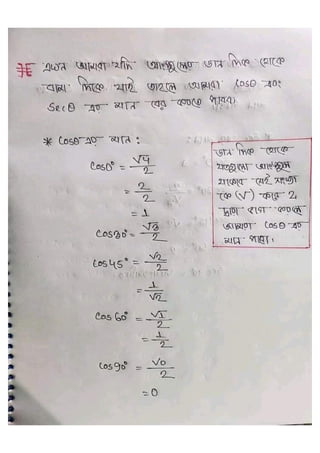 এখন আমরা যদি আঙ্গুলের ডান দিক থেকে
বাম দিকে যাই তাহলে আমরা Cosθ এবং
Secθ এর মান বের করতে পারব।
* Cosθ এর মান :
Cos0° = √4/2
= 2/2
= 1
Cos30° = √3/2
Cos45° = √2/2
= 1/√2
Cos60° = √1/2
= 1/2
Cos90° = √0/2
= 0
ডান দিক থেকে
যতগুলো আঙ্গুল
থাকবে সেই সংখ্যা
কে (√) করে 2
দ্বারা ভাগ করলে
আমরা Cosθ এর
মান পাব।